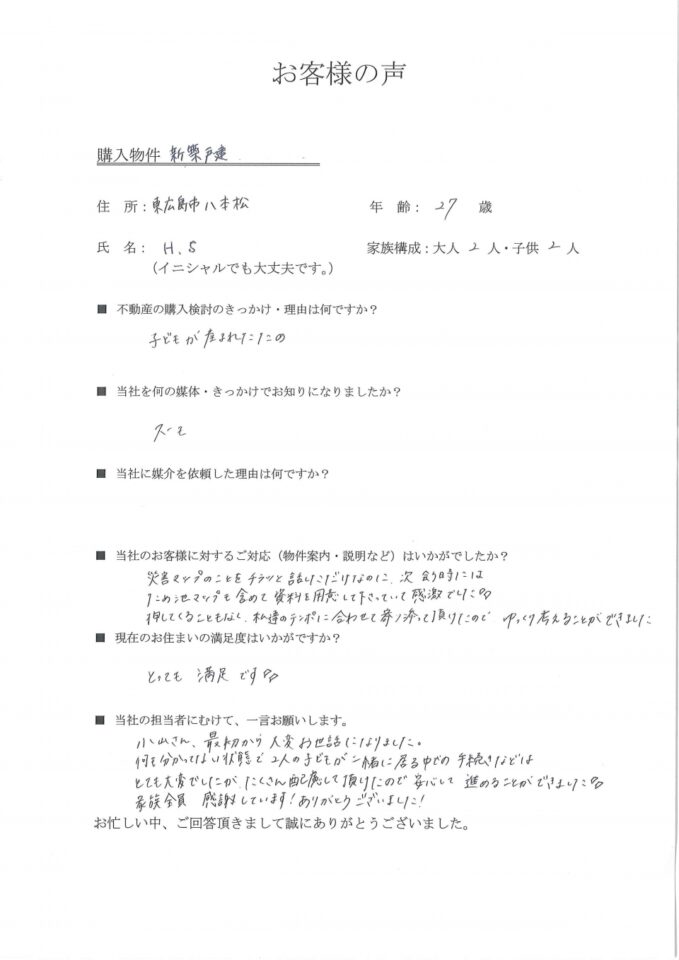 お客様の声
購入物件 新築戸建
住 所：東広島市八本松 年 齢： 27 歳
氏 名： H.S 家族構成：大人 2 人・子供 2 人
（イニシャルでも大丈夫です。）
■ 不動産の購入検討のきっかけ・理由は何ですか？
子どもが産まれたため
■ 当社を何の媒体・きっかけでお知りになりましたか？
スーモ
■ 当社に媒介を依頼した理由は何ですか？
■ 当社のお客様に対するご対応（物件案内・説明など）はいかがでしたか？
災害マップのことをチラッと話しただけなのに、次会う時には
ため池マップも含めて資料を用意して下さっていて感激でした
押してくることもなく、私達のテンポに合わせて寄り添って頂けたので ゆっくり考えることができました
■ 現在のお住まいの満足度はいかがですか？
とっても 満足 です
■ 当社の担当者にむけて、一言お願いします。
小山さん、最初から大変お世話になりました。
何も分かってない状態で2人の子どもが一緒に居る中での手続きなどは
とても大変でしたが、たくさん配慮して頂けたので安心して 進めることができました
家族全員 感謝しています！ありがとうございました！
お忙しい中、ご回答頂きまして誠にありがとうございました。